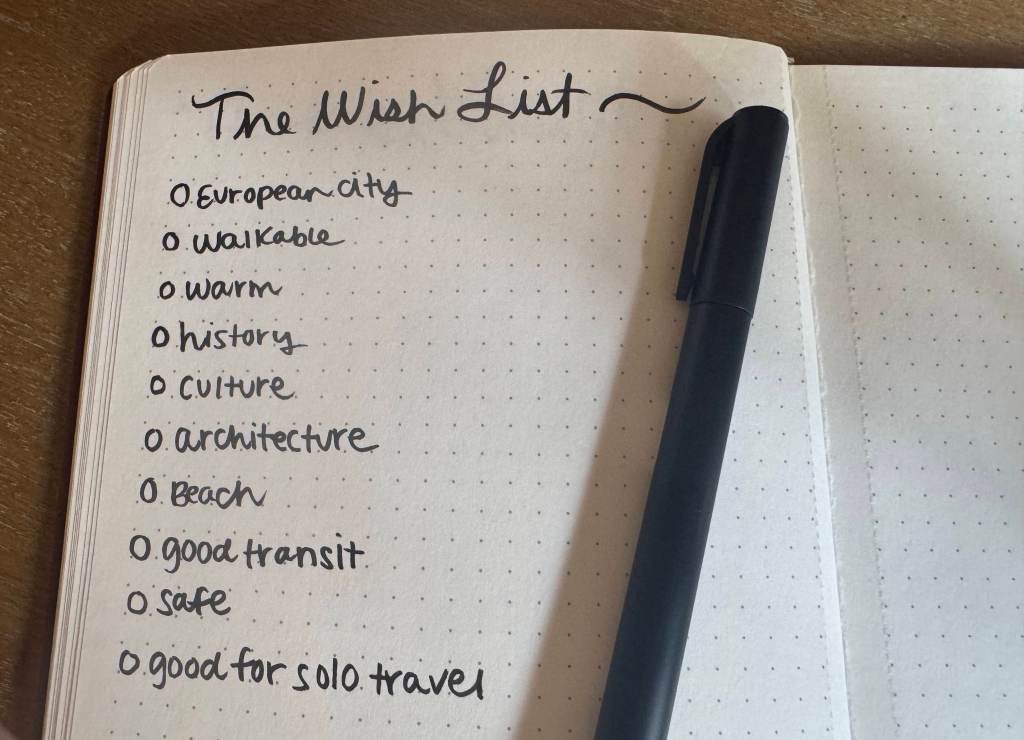 The Wish List
O European city
O walkable
O warm
O history
O culture
O architecture
O Beach
O good transit
O safe
O good for solo travel